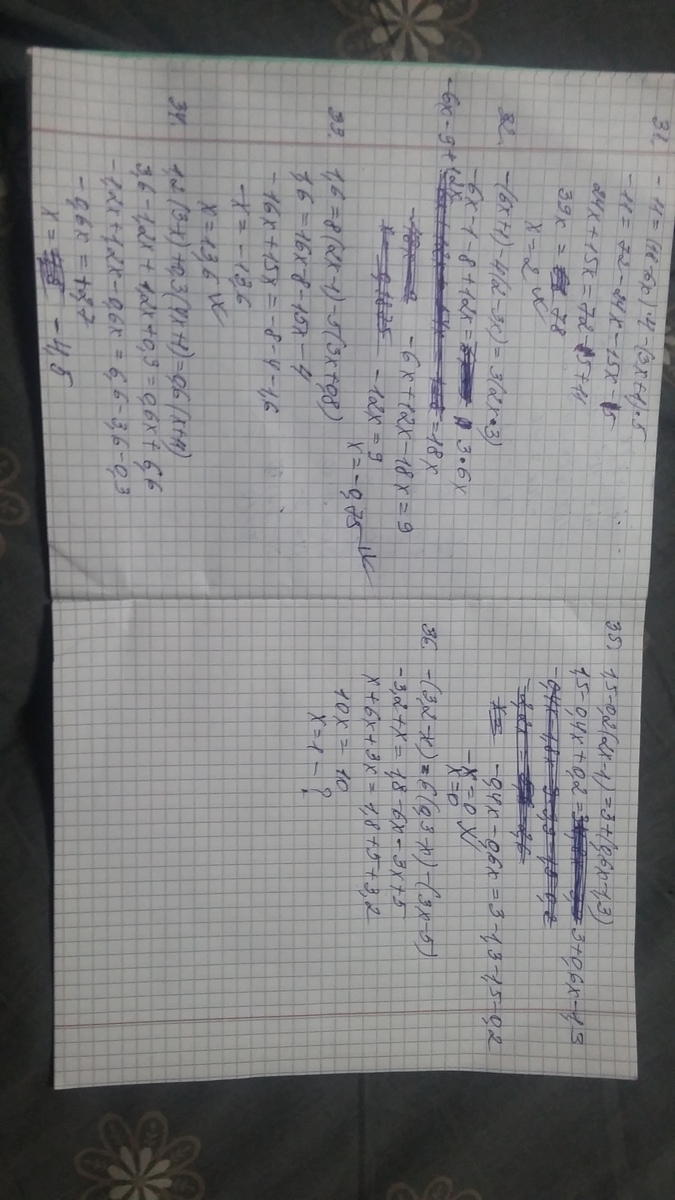 31. -11 = (18-6x)·4-(3x+4)·5
-11 = 72-24x-15x
24x+15x = 72
39x = 78
x = 2
32. -(6x+1)-4(2-3x) = 3(2x·3)
-6x-1-8+12x = 3·6x
-6x-9+12x = 18x
-6x+12x-18x = 9
-12x = 9
x = -0,75
33. 1,6 = 8(2x-1)-5(3x+0,8)
1,6 = 16x-8-15x-4
-16x+15x = -8-4-1,6
-x = -13,6
x = 13,6
34. 1,2(3-x)+0,3(4x+1) = 0,6(x+11)
3,6-1,2x+1,2x+0,3 = 0,6x+6,6
-1,2x+1,2x-0,6x = 6,6-3,6-0,3
-0,6x = 2,7
x = -4,5
35. 1,5-0,2(2x-1) = 3+(0,6x-1,3)
1,5-0,4x+0,2 = 3+0,6x-1,3
-0,4x-0,6x = 3-1,3-1,5-0,2
-x = 0
x = 0
36. -(3,2-x) = 6(0,3-x)-(3x-5)
-3,2+x = 1,8-6x-3x+5
x+6x+3x = 1,8+5+3,2
10x = 10
x = 1 - ?